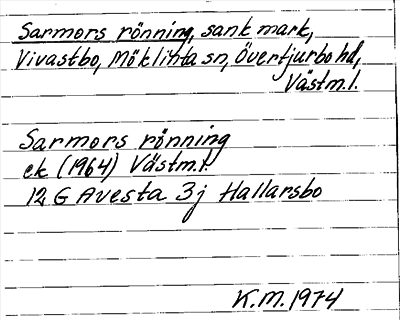 Sarmors rönning, sank mark,
Vivastbo, Möklinta sn, Övertjurbo hd,
Västm.l.
Sarmors rönning
ek (1964) Västm.l.
12 G Avesta 3j Hallarsbo
K.M. 1974